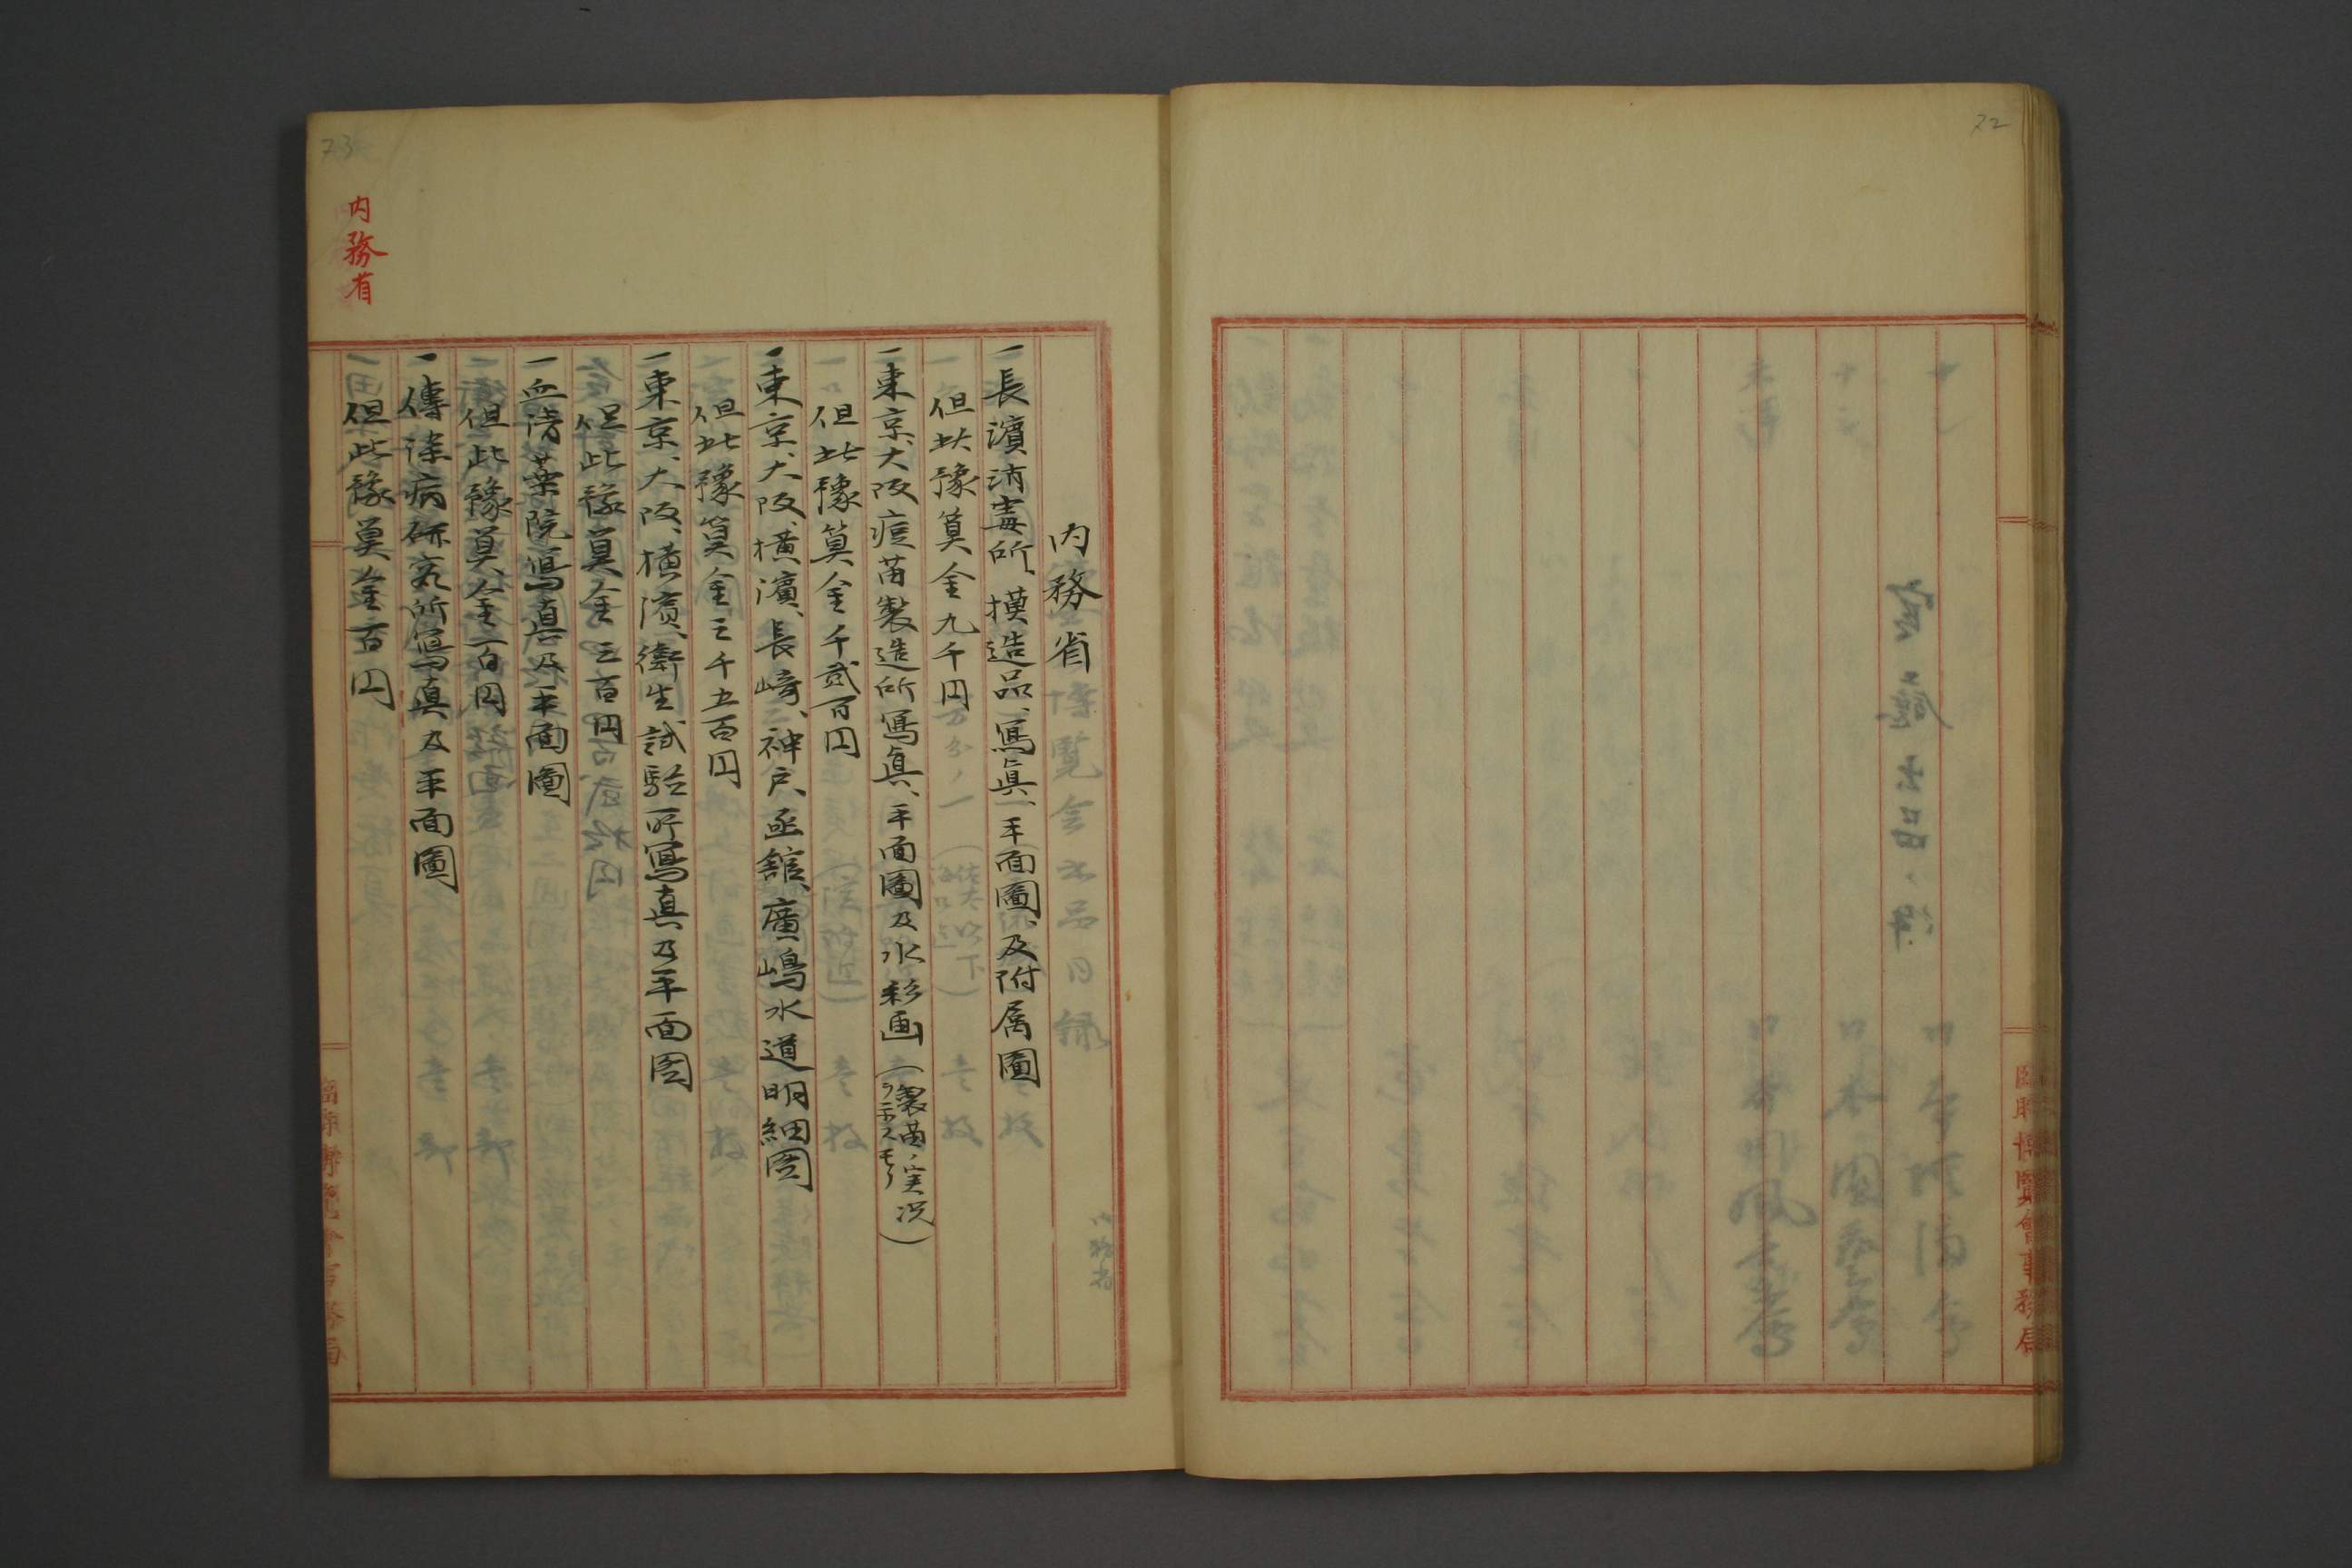 72
臨時博覽會事務局
73
内務省
内務省
一長濱消毒所、摸造品、寫眞、平面圖、及附属圖
但此豫算金九千円
一東京、大阪痘苗製造所寫眞、平面圖及水彩画（製苗ノ実况ヲ示スモノ）
但此豫算金千貳百円
一東京、大阪、横濱、長崎、神戸、函館、廣嶋水道明細図
但此豫算金三千五百円
一東京、大阪、横濱、衛生試驗所寫真及平面図
但此豫算金三百円
一血清藥院寫真及平面圖
但此豫算金一百円
一傳染病研究所寫真及平面圖
但此豫算金百円
臨時博覽會事務局